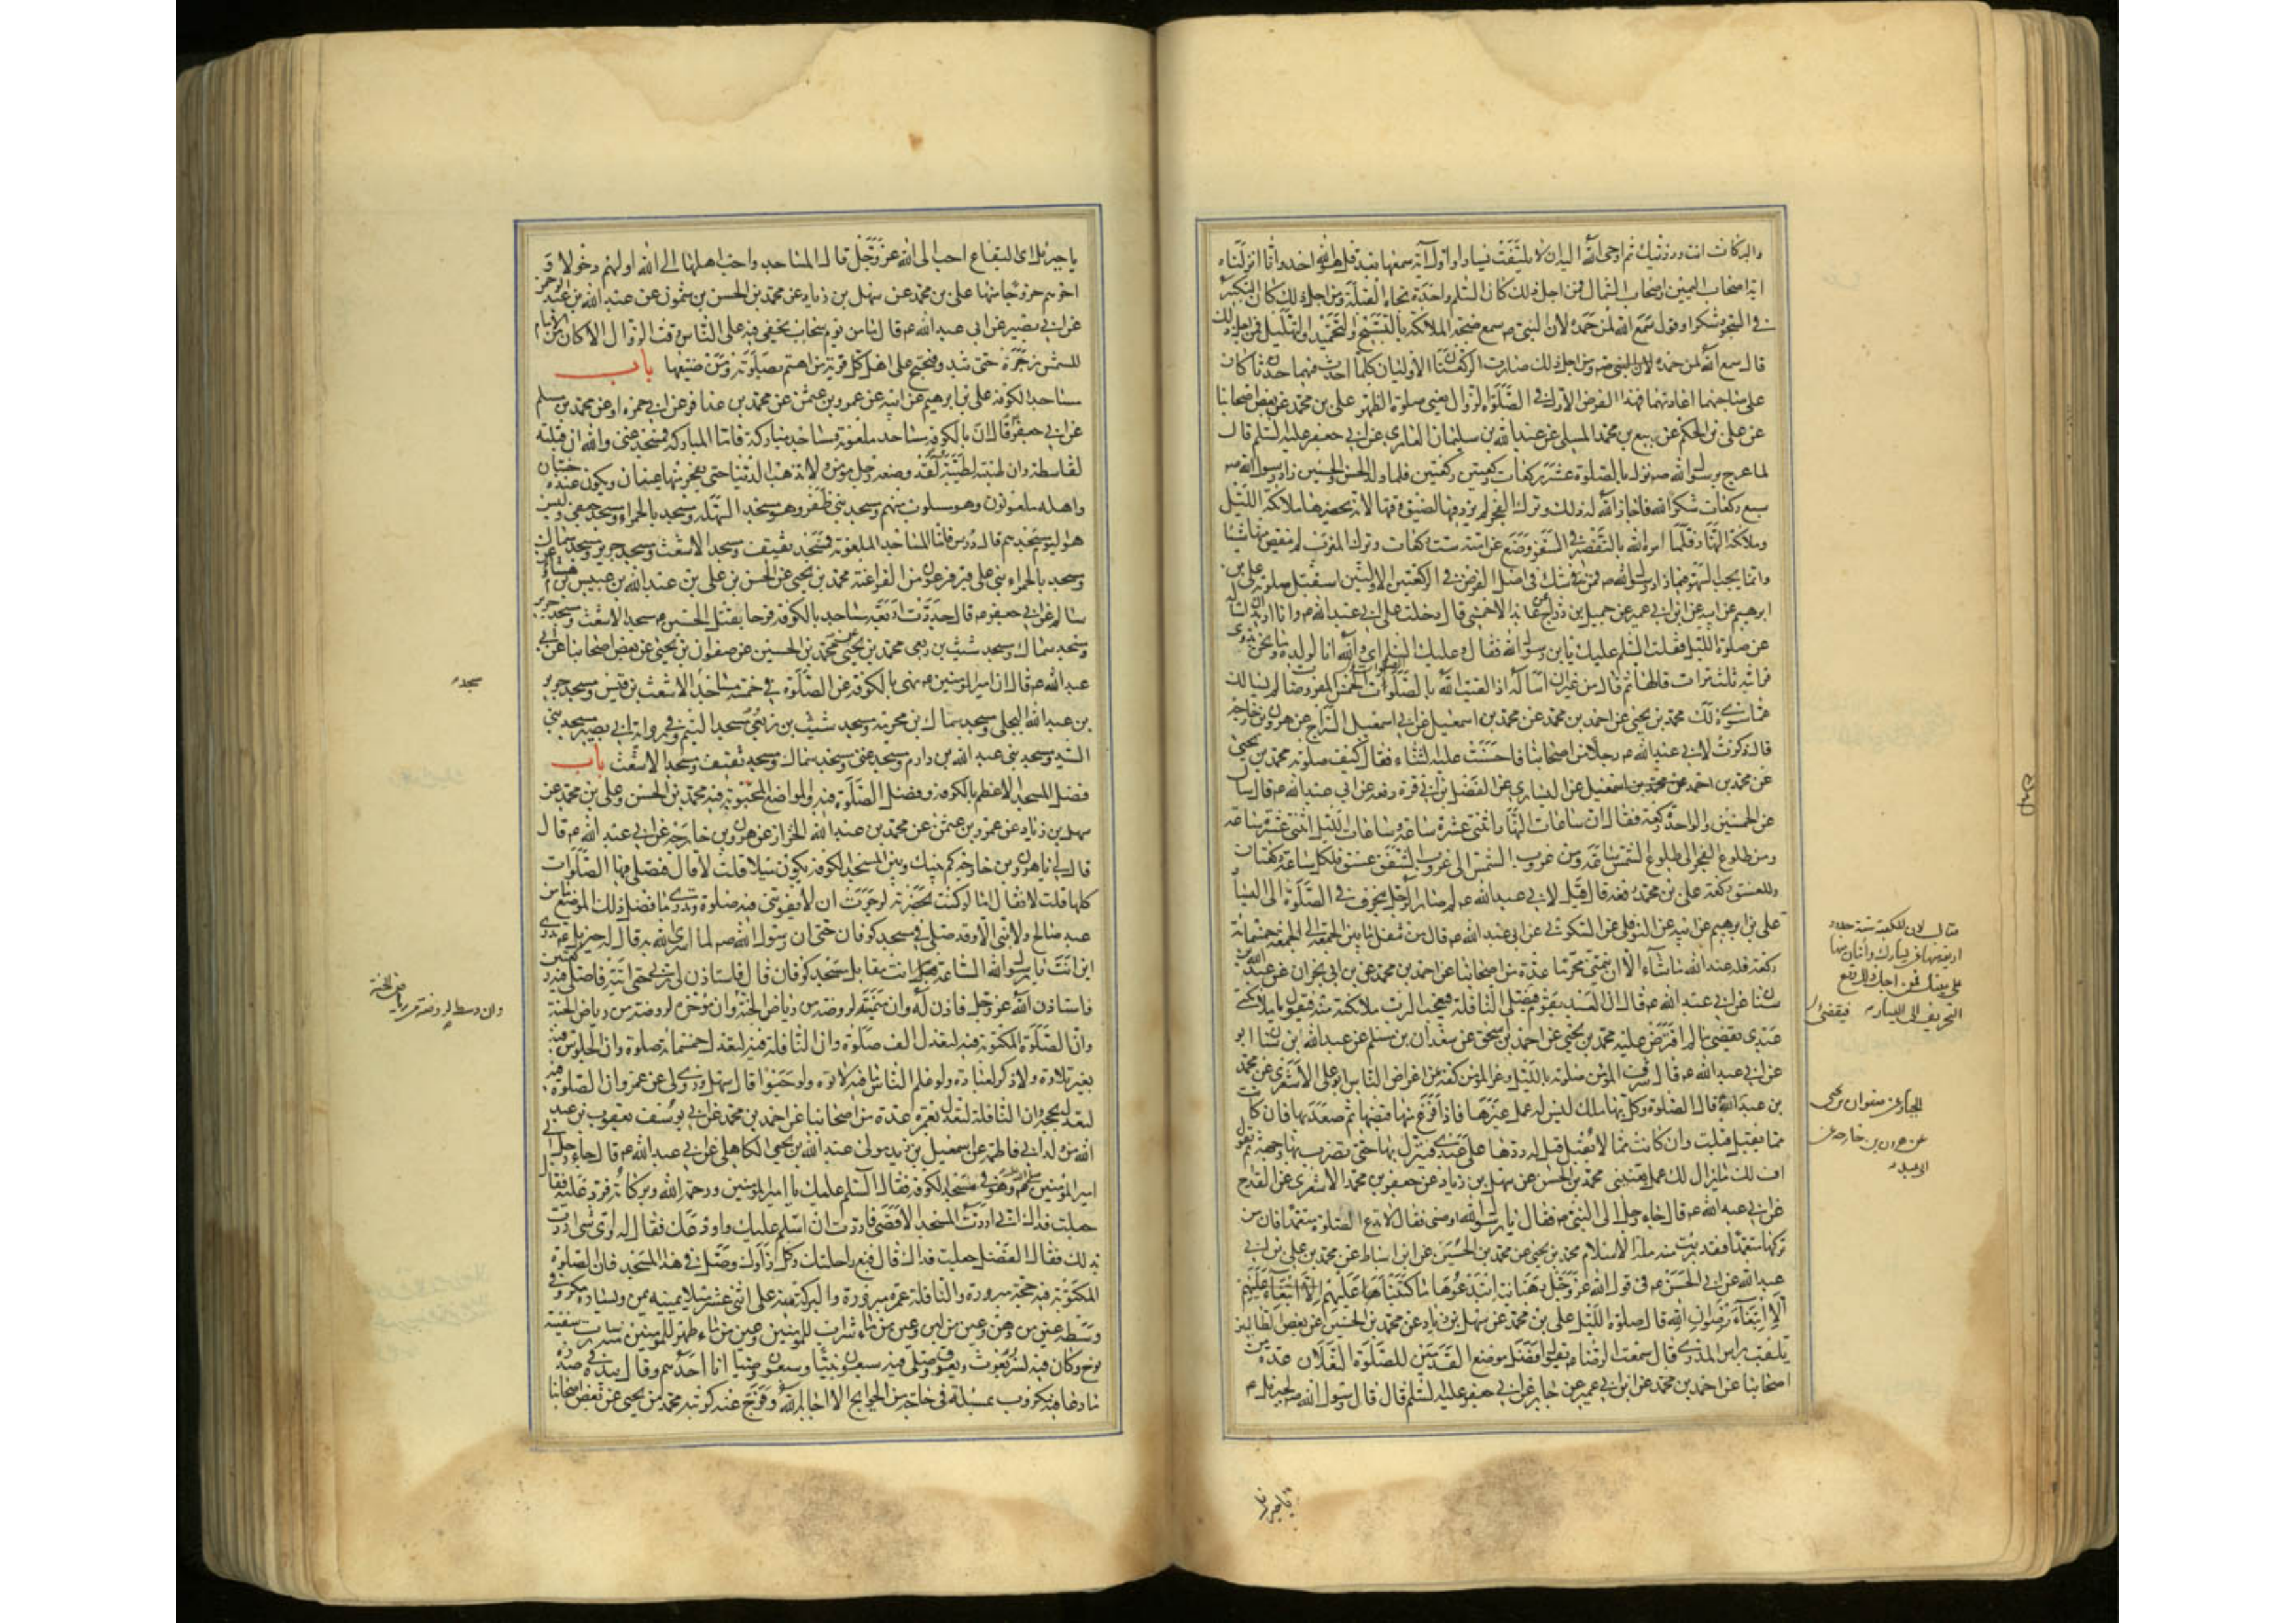 والبركات انت وذريتك ثم اوحى الله اليه ان لا يلتفت يسارا واول آية سمعها بعد قل هو الله احد وانا انزلناه
آية اصحاب اليمين واصحاب الشمال فمن اجل ذلك كان السلم واحدة تجاه القبلة ومن اجل ذلك كان التكبير
في السجود شكرا وقوله سمع الله لمن حمده لان النبي ص سمع ضجة الملائكة بالتسبيح والتحميد والتهليل فمن اجل ذلك
قال سمع الله لمن حمده ومن اجل ذلك صارت الركعتان الأوليان كلما احدث فيهما حدثا كان
على صاحبهما اعادتهما فهذا الفرض الأول في الصلوة الزوال يعني صلوة الظهر علي بن محمد عن بعض اصحابنا
عن علي بن الحكم عن ربيع بن محمد المسلي عن عبد الله بن سليمان العامري عن ابي جعفر عليه السلم قال
لما عرج برسول الله ص نزل بالصلوة عشر ركعات ركعتين ركعتين فلما ولد الحسن والحسين زاد رسول الله ص
سبع ركعات شكرا لله فاجاز الله له ذلك وترك الفجر لم يزد فيها لضيق وقتها لانه يحضرها ملائكة الليل
وملائكة النهار فلما امره الله بالتقصير في السفر وضع عن امته ست ركعات وترك المغرب لم ينقص منها شيئا
وانما يجب السهو فيما زاد رسول الله ص فمن شك في اصل الفرض في الركعتين الاوليين استقبل صلوته علي بن
ابرهيم عن ابيه عن ابن ابي عمير عن جميل بن دراج عن عايذ الاحمسي قال دخلت على ابي عبد الله م وانا اريد ان اساله
عن صلوة الليل فقلت السلم عليك يابن رسول الله فقال وعليك السلم اي والله انا لولده وما نحن بذوي
قرابته ثلث مرات قالها ثم قال من غير ان اساله اذا لقيت الله بالصلوات الخمس المفروضات لم يسالك
عما سوى ذلك محمد بن يحيى عن احمد بن محمد عن محمد بن اسمعيل عن ابي اسمعيل السراج عن هرون بن خارجة
قال ذكرت لابي عبد الله م رجلا من اصحابنا فاحسنت عليه الثناء فقال كيف صلوته محمد بن يحيى
عن محمد بن احمد عن محمد بن اسمعيل عن السياري عن الفضل بن ابي قرة رفعه عن ابي عبد الله م قال سال
عن الخمسين والواحدة ركعة فقال ان ساعات النهار اثنتى عشرة ساعة وساعات الليل اثنتى عشرة ساعة
ومن طلوع الفجر الى طلوع الشمس ساعة ومن غروب الشمس الى غروب الشفق غسق فلكل ساعة ركعتان
وللغسق ركعة علي بن محمد رفعه قال قيل لابي عبد الله م لم صار الرجل ينحرف في الصلوة الى اليسار
علي بن ابرهيم عن ابيه عن النوفلي عن السكوني عن ابي عبد الله م قال من تنفل ما بين الجمعة الى الجمعة خمسمائة
ركعة فله عند الله ما شاء الا ان يتمنى محرما عدة من اصحابنا عن احمد بن محمد عن ابن ابي نجران عن عبد الله بن
سنان عن ابي عبد الله م قال ان العبد يقوم فيصلي النافلة فيعجب الرب ملائكته منه فيقول يا ملائكتي
عبدي يقضي ما لم افترض عليه محمد بن يحيى عن احمد بن اسحق عن سعدان بن مسلم عن عبد الله بن سنان
عن ابي عبد الله م قال شرف المؤمن صلوته بالليل وعز المؤمن كفه عن اعراض الناس ابو علي الأشعري عن محمد
بن عبد الجبار قال الصلوة وكل بها ملك ليس له عمل غيرها فاذا فرغ منها قبضها ثم صعد بها فان كانت
مما يقبل قبلت وان كانت مما لا يقبل قيل له ردها على عبدي فينزل بها حتى يضرب بها وجهه ثم يقول
اف لك ما يزال لك عمل يعنيني محمد بن الحسن عن سهل بن زياد عن جعفر بن محمد الاشعري عن القداح
عن ابي عبد الله م قال جاء رجل الى النبي ص فقال يا رسول الله اوصني فقال لا تدع الصلوة متعمدا فان من
تركها متعمدا فقد برئت منه ملة الاسلام محمد بن يحيى عن محمد بن الحسين عن ابن اسباط عن محمد بن علي بن ابي
عبد الله عن ابي الحسن م في قول الله عز وجل رهبانية ابتدعوها ما كتبناها عليهم الا ابتغاء
الا ابتغاء رضوان الله قال صلوة الليل علي بن محمد عن سهل بن زياد عن محمد بن الحسين عن بعض الطالبيين
يلقب براس المدري قال سمعت الرضا م يقول افضل موضع القدمين للصلوة النعلان عدة من
اصحابنا عن احمد بن محمد عن ابن ابي عمير عن جابر عن ابي جعفر عليه السلم قال قال رسول الله ص لجبرئيل م
فقال لان للكعبة ستة حدود
اربعة منها عن يسارك واثنان منها
على يمينك فمن اجل ذلك وقع
التحريف الى اليسار
الجبار عن صفوان بن يحيى
عن هرون بن خارجة عن
ابي عبد الله
يا جبرئيل
يا جبرئيل اي البقاع احب الى الله عز وجل قال المساجد واحب اهلها الى الله اولهم دخولا و
اخرهم خروجا منها علي بن محمد عن سهل بن زياد عن محمد بن الحسن بن شمون عن عبد الله بن عبد الرحمن
عن ابي بصير عن ابي عبد الله م قال ما من يوم سحاب يخفى فيه على الناس وقت الزوال الا كان من الامام
للشمس زجرة حتى تبدو فيحتج على اهل كل قرية من اهتم بصلوته ومن ضيعها باب
مساجد الكوفة علي بن ابرهيم عن ابيه عن عمرو بن عثمن عن محمد بن عذافر عن ابي حمزة او عن محمد بن مسلم
عن ابي جعفر م قال ان بالكوفة مساجد ملعونة ومساجد مباركة فاما المباركة فمسجد غنى والله ان قبلته
لقاسطة وان طينته لطيبة ولقد وضعه رجل مؤمن ولا تذهب الدنيا حتى تفجر منها عينان ويكون عنده جنتان
واهله ملعونون وهو مسلوب منهم ومسجد بني ظفر وهو مسجد السهلة ومسجد بالحمراء ومسجد جعفي وليس
هو اليوم مسجدهم قال درس فاما المساجد الملعونة فمسجد ثقيف ومسجد الاشعث ومسجد جرير ومسجد سماك
ومسجد بالحمراء بني على قبر فرعون من الفراعنة محمد بن يحيى عن الحسن بن علي بن عبد الله عن عبيس بن هشام عن
سالم عن ابي جعفر م قال جددت اربعة مساجد بالكوفة فرحا بقتل الحسين م مسجد الاشعث ومسجد جرير
ومسجد سماك ومسجد شبث بن ربعي محمد بن يحيى عن محمد بن الحسين عن صفوان بن يحيى عن بعض اصحابنا عن ابي
عبد الله م قال ان امير المؤمنين م نهى بالكوفة عن الصلوة في خمسة مساجد الاشعث بن قيس ومسجد جرير
بن عبد الله البجلي ومسجد سماك بن مخرمة ومسجد شبث بن ربعي ومسجد التيم وفي رواية ابي بصير مسجد بني
السيد ومسجد بني عبد الله بن دارم ومسجد غنى ومسجد سماك ومسجد ثقيف ومسجد الاشعث باب
فضل المسجد الاعظم بالكوفة وفضل الصلوة فيه والمواضع المحبوبة فيه محمد بن الحسن وعلي بن محمد عن
سهل بن زياد عن عمرو بن عثمن عن محمد بن عبد الله الخزاز عن هرون بن خارجة عن ابي عبد الله م قال
قال لي يا هرون بن خارجة كم بينك وبين مسجد الكوفة يكون ميلا قلت لا قال فتصلي فيها الصلوات
كلها قلت لا فقال اما لو كنت بحضرته لرجوت ان لا تفوتني فيه صلوة وتدري ما فضل ذلك الموضع ما من
عبد صالح ولا نبي الا وقد صلى في مسجد كوفان حتى ان رسول الله ص لما اسرى الله به قال له جبرئيل م تدري
اين انت يا رسول الله الساعة انت مقابل مسجد كوفان قال فاستاذن لي ربي حتى آتيه فاصلي فيه ركعتين
فاستاذن الله عز وجل فاذن له وان ميمنته لروضة من رياض الجنة وان مؤخره لروضة من رياض الجنة
وان الصلوة المكتوبة فيه لتعدل الف صلوة وان النافلة فيه لتعدل خمسمائة صلوة وان الجلوس فيه
بغير تلاوة ولا ذكر لعبادة ولو علم الناس ما فيه لاتوه ولو حبوا قال سهل وروى لي عن عمرو ان الصلوة فيه
لتعدل بحجة وان النافلة لتعدل بعمرة عدة من اصحابنا عن احمد بن محمد عن ابي يوسف يعقوب بن عبد
الله من ولد ابي فاطمة عن اسمعيل بن زيد مولى عبد الله بن يحيى الكاهلي عن ابي عبد الله م قال جاء رجل الى
امير المؤمنين م وهو في مسجد الكوفة فقال السلم عليك يا امير المؤمنين ورحمة الله وبركاته فرد عليه فقال
جعلت فداك اني اردت المسجد الاقصى فاردت ان اسلم عليك واودعك فقال له واي شيء اردت
بذلك فقال الفضل جعلت فداك قال فبع راحلتك وكل زادك وصل في هذا المسجد فان الصلوة
المكتوبة فيه حجة مبرورة والنافلة عمرة مبرورة والبركة منه على اثنى عشر ميلا يمينه يمن ويساره مكر وفي
وسطه عين من دهن وعين من لبن وعين من ماء شراب للمؤمنين وعين من ماء طهر للمؤمنين منه سارت سفينة
نوح وكان فيه نسر ويغوث ويعوق وصلى فيه سبعون نبيا وسبعون وصيا انا احدهم وقال بيده في صدره
ما دعا فيه مكروب بمسئلة في حاجة من الحوايج الا اجابه الله وفرج عنه كربته محمد بن يحيى عن بعض اصحابنا
مسجد
وان وسطه لروضة من رياض الجنة